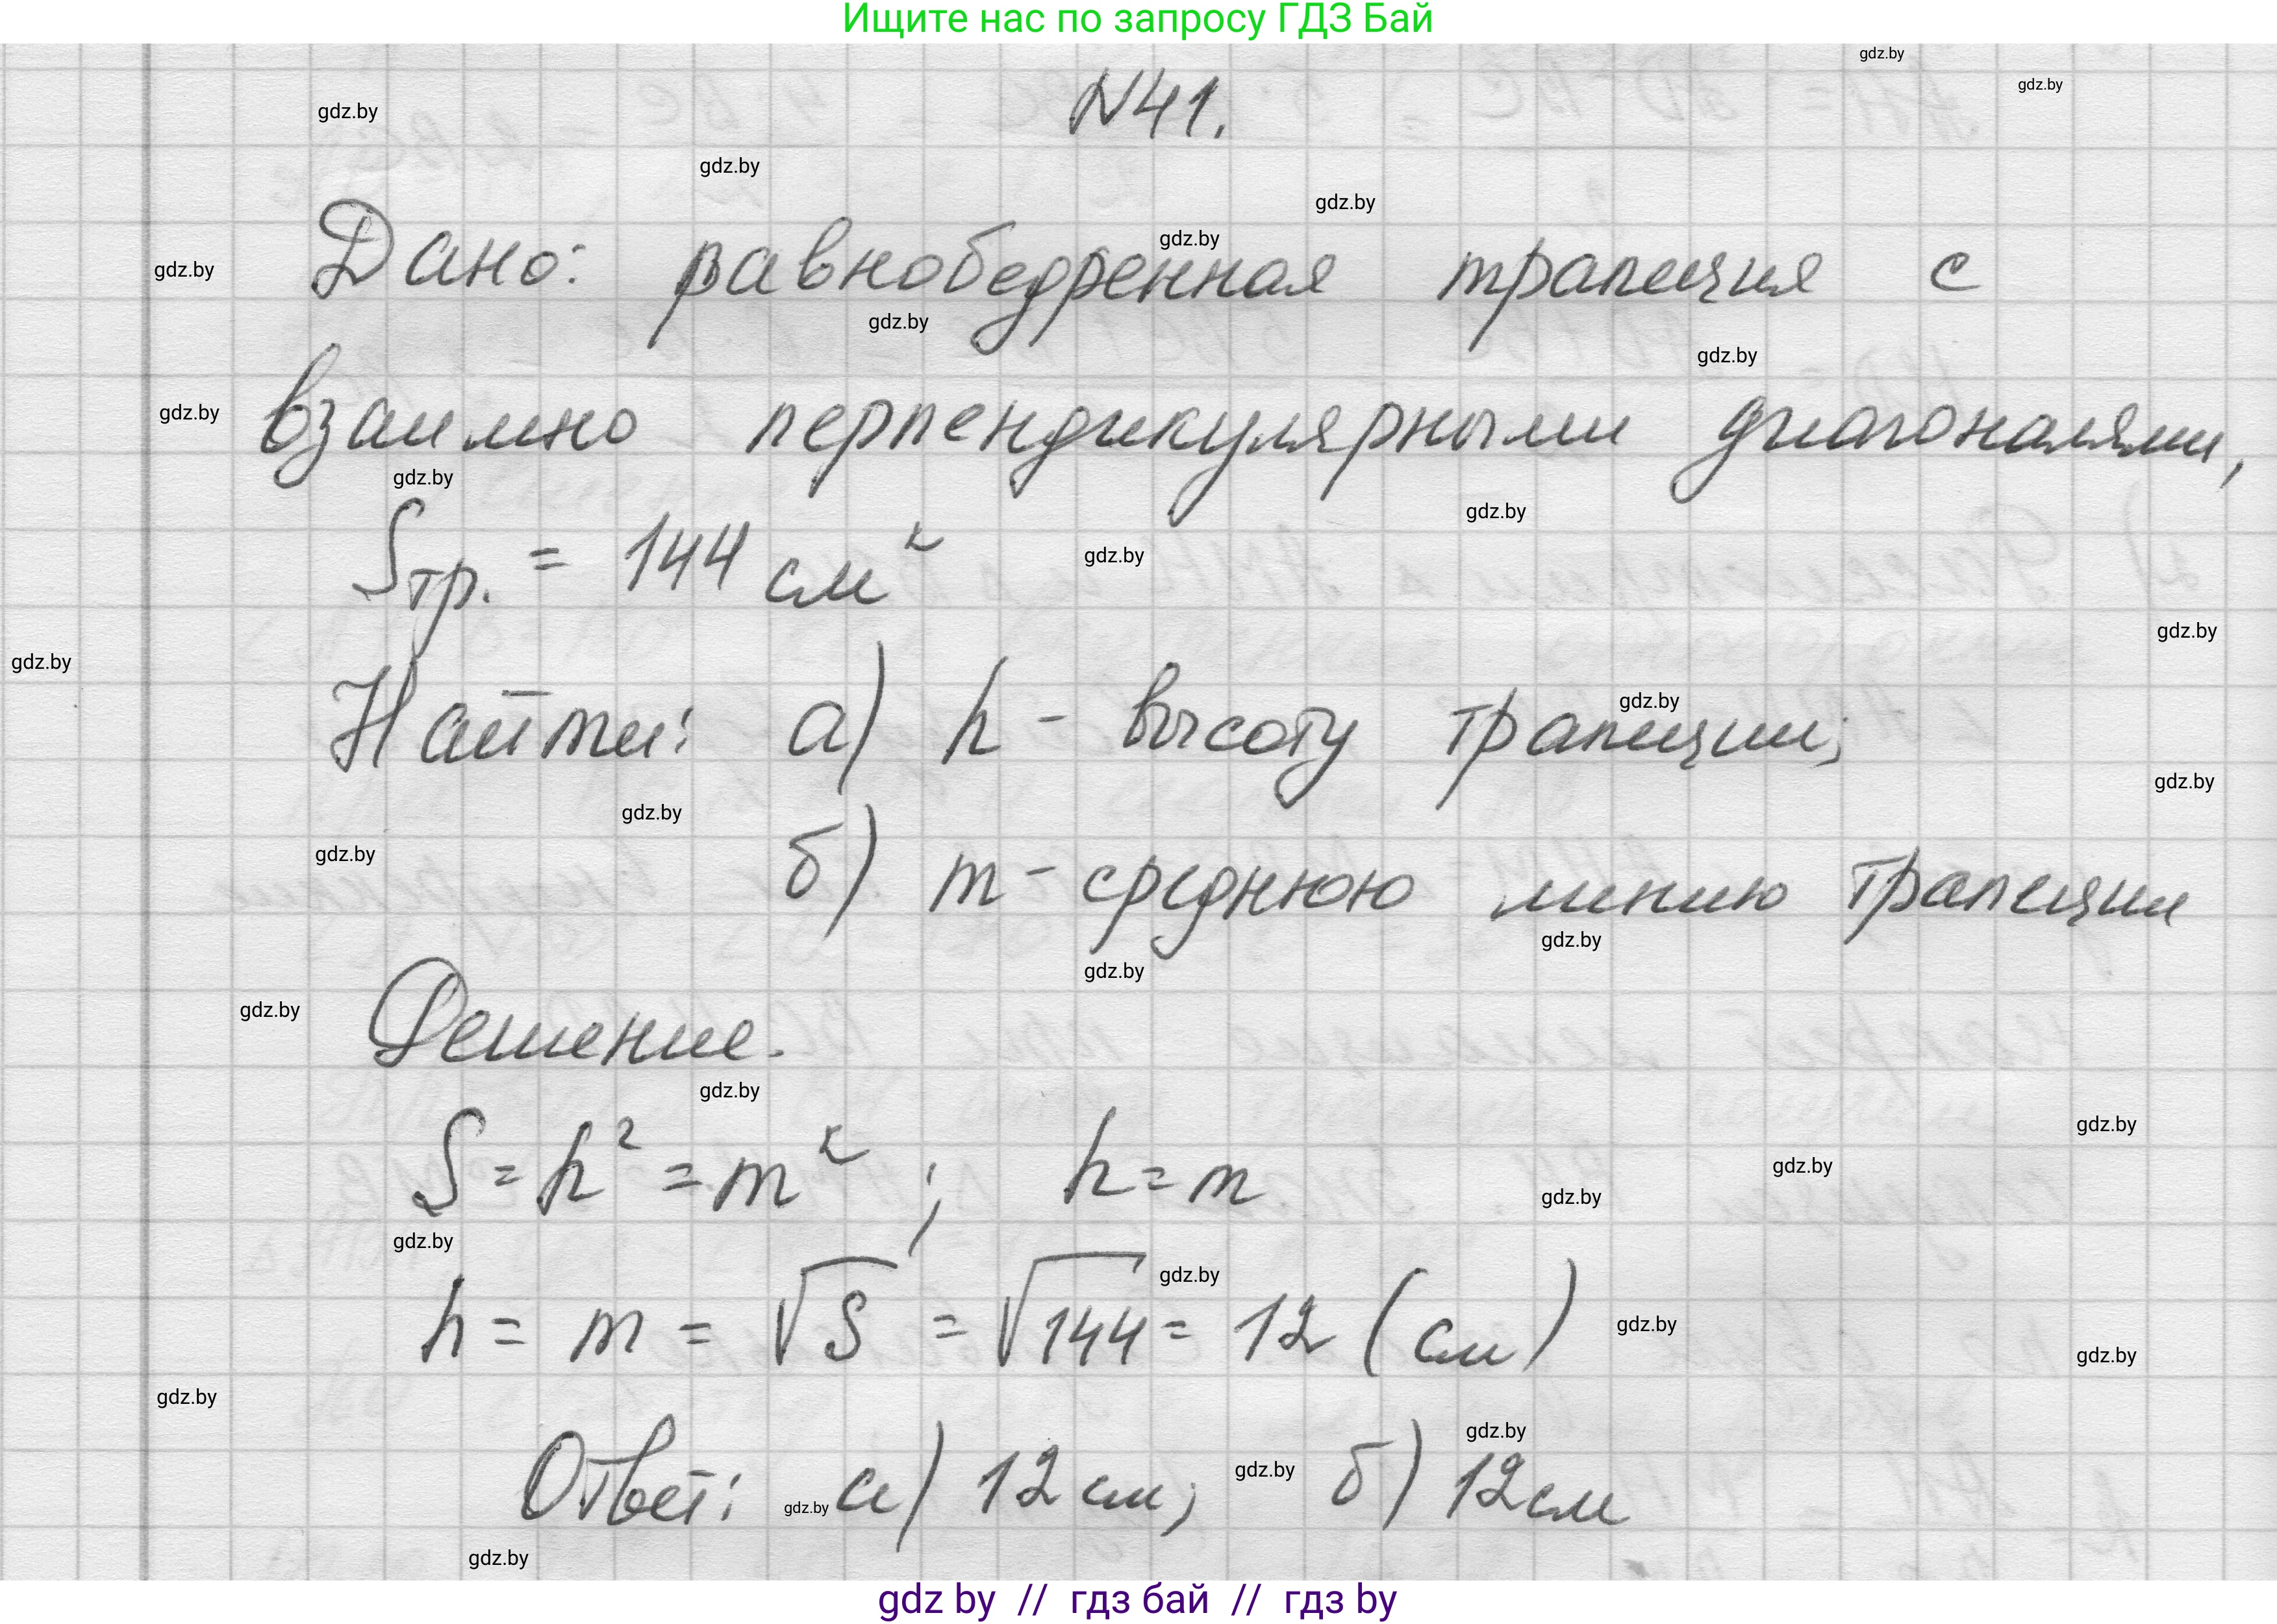 Ищите нас по запросу ГДЗ Бай
gdz.by
gdz.by
gdz.by
№41.
gdz.by
gdz.by
gdz.by
gdz.by
Дано: равнобедренная трапеция с
gdz.by
gdz.by
gdz.by
взаимно перпендикулярными диагоналями,
gdz.by
gdz.by
gdz.by
Sтр. = 144 см²
gdz.by
gdz.by
gdz.by
Найти: а) h - высоту трапеции;
gdz.by
gdz.by
gdz.by
б) m - среднюю линию трапеции
gdz.by
gdz.by
gdz.by
Решение.
gdz.by
gdz.by
S = h² = m² ; h = m
gdz.by
gdz.by
gdz.by
gdz.by
h = m = √S = √144 = 12 (см)
gdz.by
gdz.by
gdz.by
gdz.by
Ответ: а) 12 см; б) 12 см
gdz.by
gdz.by
gdz.by
gdz by // гдз бай // гдз by